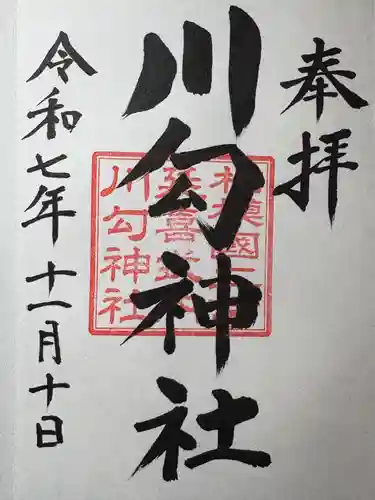 奉拝
川勾神社
令和七年十一月十日
相模國二
延喜
川勾神社